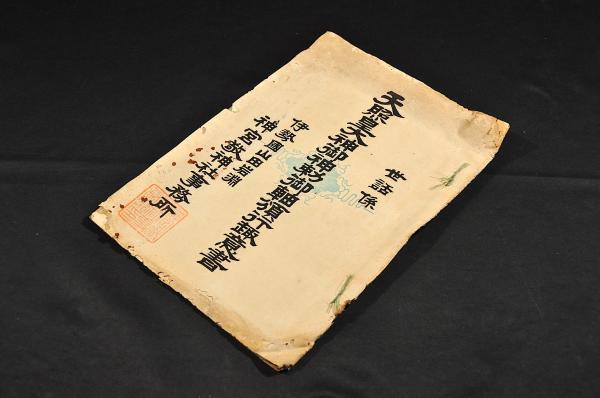 世話係
天照皇大神御神勅御軸頒行趣意書
伊勢國山田岩淵
神宮敬神社事務所